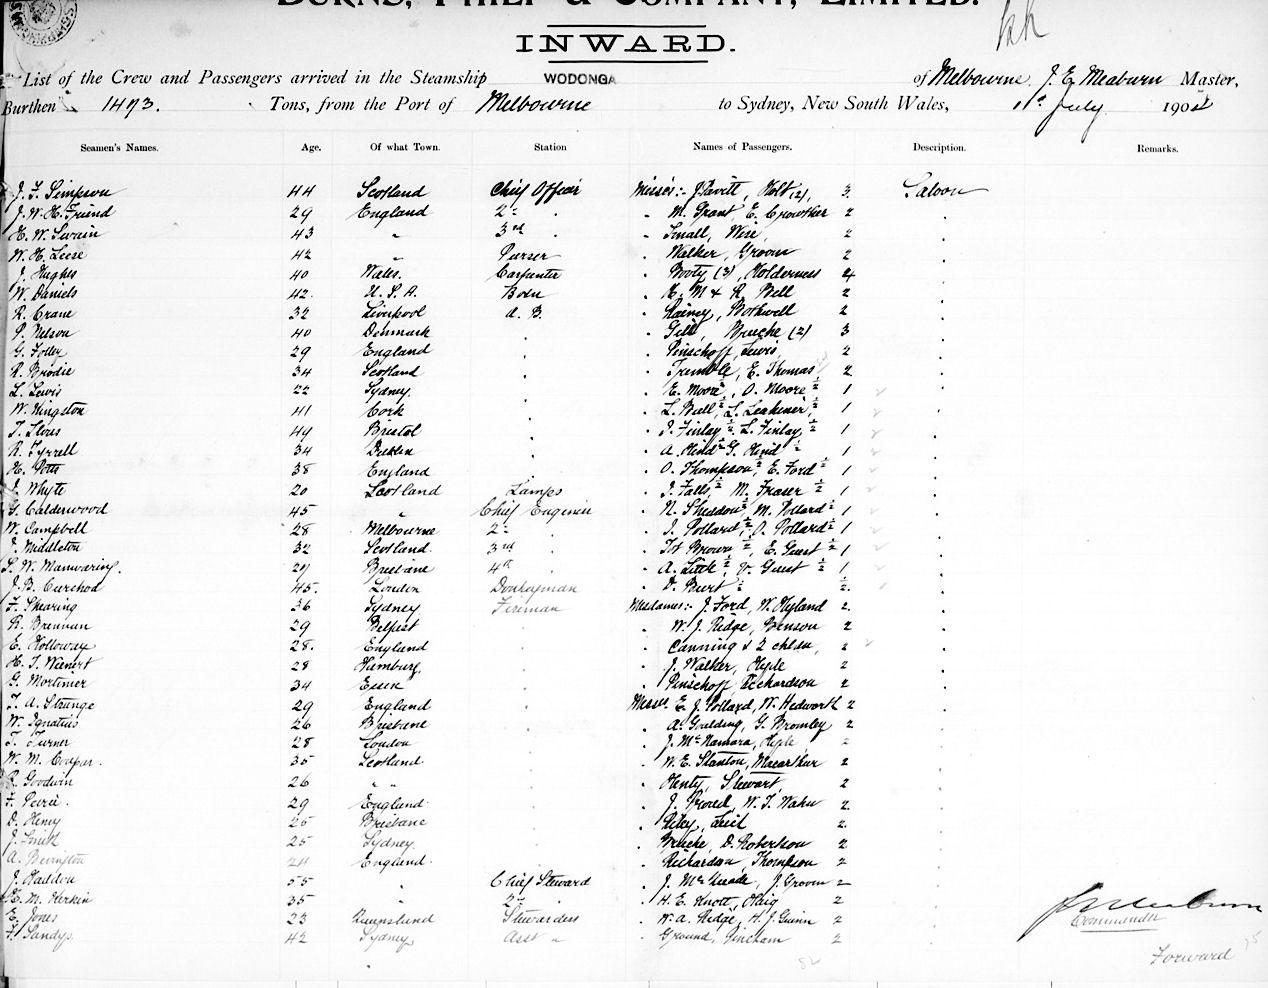 BURNS, PHILP & COMPANY, LIMITED.
INWARD.
List of the Crew and Passengers arrived in the Steamship WODONGA of Melbourne J. E. Meaburn Master,
Burthen 1473. Tons, from the Port of Melbourne to Sydney, New South Wales, 1st July 190
Seamen's Names. Age. Of what Town. Station Names of Passengers. Description. Remarks.
J. F. Simpson 44 Scotland Chief Officer Misses:- Holt (2), 3 Saloon
J. W. H. Friend 29 England 2nd " M. Grant, E. Crowther 2
H. W. Swain 43 " 3rd " Small, Wise, 2
W. H. Leese 42 " Purser " Walker, Groom 2
J. Hughes 40 Wales. Carpenter " Booty (3), Holderness 4
W. Daniels 42 U. S. A. Bosn " E. M & R. Bell 2
R. Crane 32 Liverpool A. B. " Rainey, Bothwell 2
P. Nelson 40 Denmark " Gill (2) 3
G. Folley 29 England " Pinschoff, Lewis, 2
R. Brodie 34 Scotland " Tremble, E. Thomas 2
L. Lewis 22 Sydney " E. Moore ½, O. Moore ½ 1
W. Kingston 41 Cork " L. Ball ½, L. ½ 1
T. 49 Bristol " J. Finlay ½ L. Finlay ½ 1
R. Tyrrell 34 Dublin " A. Hind ½ G. Hind ½ 1
H. Potts 38 England " O. Thompson ½, E. Ford ½ 1
J. Whyte 20 Scotland Lamps " J. Falls ½, M. Fraser ½ 1
G. Calderwood 45 " Chief Engineer " N. Sheddon ½, M. Pollard ½ 1
W. Campbell 28 Melbourne 2nd " " J. Pollard ½, O. Pollard ½ 1
J. Middleton 32 Scotland 3rd " " Brown ½, E. Guest ½ 1
S. W. Manwaring. Brisbane 4th " A. Little ½, V. Guest ½ 1
J. B. Curchod 45. London Donkeyman " D. Burt ½ ½
F. Shearing 36 Sydney Fireman Mesdames:- J. Ford, W. Hyland 2
R. Brennan 29 Belfast " W. J. Ridge, Benson 2
E. Holloway 28. England " Canning & 2 chldn, 2
H. T. Wienert 28 Hamburg " J. Walker, Heple 2
G. Mortimer 34 Essex " Pinschoff Richardson 2
T. A. Strange 29 England Messrs. E. J. Pollard, W. Hedworth 2
W. Ignatius 26 Brisbane " A. Goulding, G. Bromley 2
T. Turner 28 London " J. McNamara, Heple 2
W. M. Coupar. 35 Scotland " W. E. Stanton, Macarthur 2
R. Goodwin 26 " " " Henty, Stewart, 2
F. 29 England " J. W. T. 2
D. Henry 25 Brisbane " Riley, 2
J. Smith 25 Sydney " D. Robertson 2
A. England " Richardson, Thompson 2
J. Haddon 55 " Chief Steward " J. McQuade, J. Groom 2
M. Kerkin 35 " 2nd " " H. E. Knott, Haig 2
E. Jones 23 Queensland Stewardess " W. A. Hedge, H. J. Gunn 2
F. Sandys. 42 Sydney Asst " " Ground, Gincham 2
J. E. Meaburn
Commander
82
Forward 75